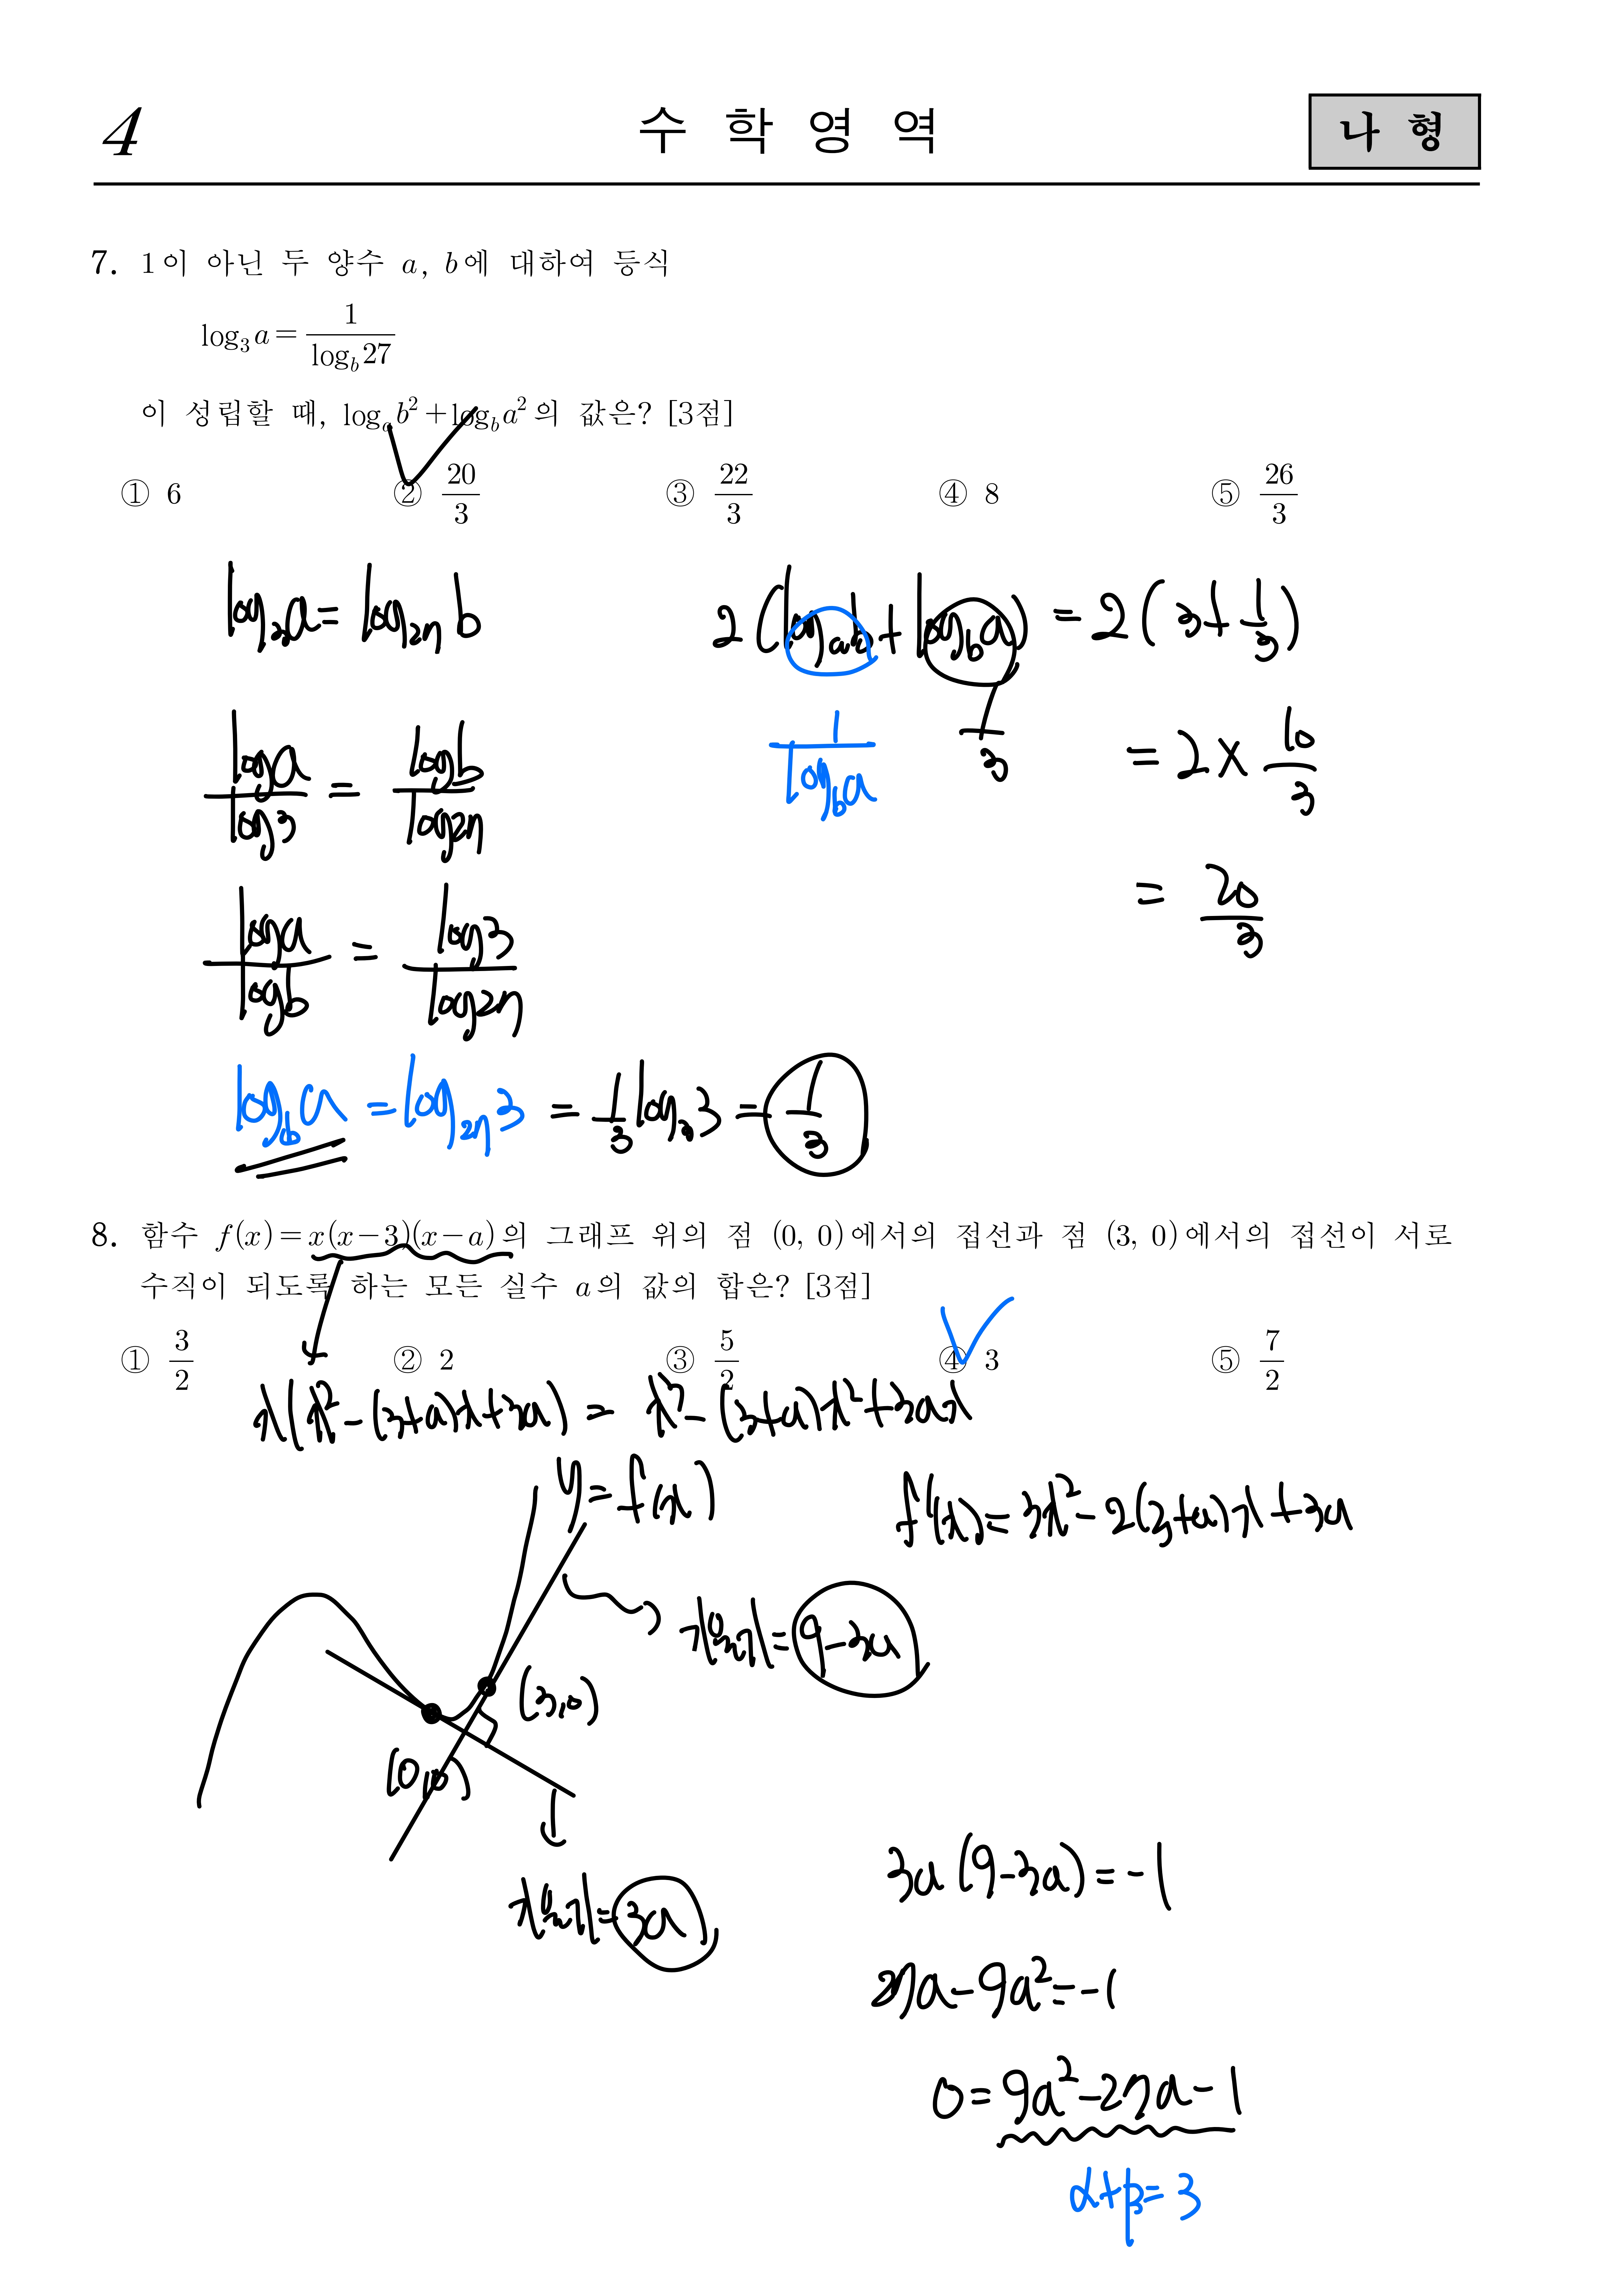 4 수 학 영 역 나 형
7. 1이 아닌 두 양수 a, b에 대하여 등식
log₃a = 1/log_b 27
이 성립할 때, log_a b² + log_b a² 의 값은? [3점]
① 6 ② 20/3 ③ 22/3 ④ 8 ⑤ 26/3
log₃a = log₂₇b
loga/log3 = logb/log27
loga/logb = log3/log27
log_b a = log₂₇3 = 1/3 log₃3 = 1/3
2(log_a b + log_b a) = 2(3 + 1/3)
1/log_b a
1/3
= 2 × 10/3
= 20/3
8. 함수 f(x) = x(x-3)(x-a)의 그래프 위의 점 (0, 0)에서의 접선과 점 (3, 0)에서의 접선이 서로
수직이 되도록 하는 모든 실수 a의 값의 합은? [3점]
① 3/2 ② 2 ③ 5/2 ④ 3 ⑤ 7/2
x(x²-(3+a)x+3a) = x³-(3+a)x²+3ax
y=f(x)
f'(x)=3x²-2(3+a)x+3a
기울기=9-3a
(3,0)
(0,0)
기울기=3a
3a(9-3a)=-1
27a-9a²=-1
0=9a²-27a-1
α+β=3